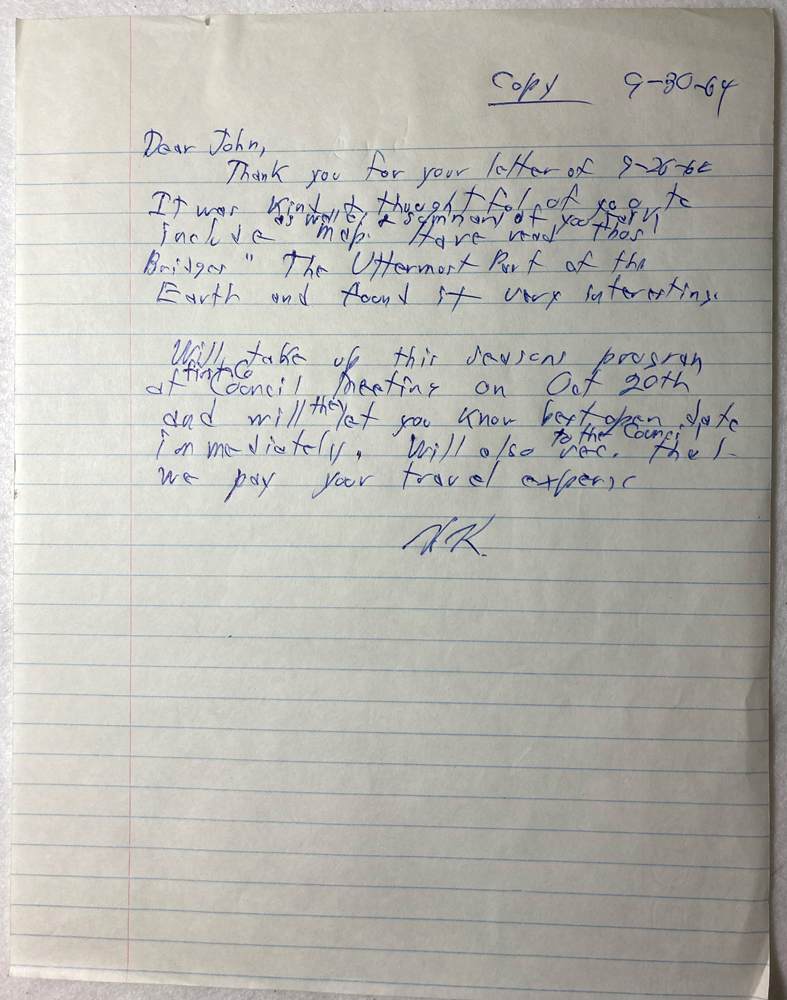 Copy 9-30-64
Dear John,
Thank you for your letter of 9-26-64
It was kind & thoughtful of you to
as well as a summary of your
include map. Have read
Bridges "The Uttermost Part of the
Earth and found it very interesting.
Will take up this seasons program
first Co
at Council Meeting on Oct 20th
and will then let you know best open date
to the Council
immediately. Will also rec. that
we pay your travel expense